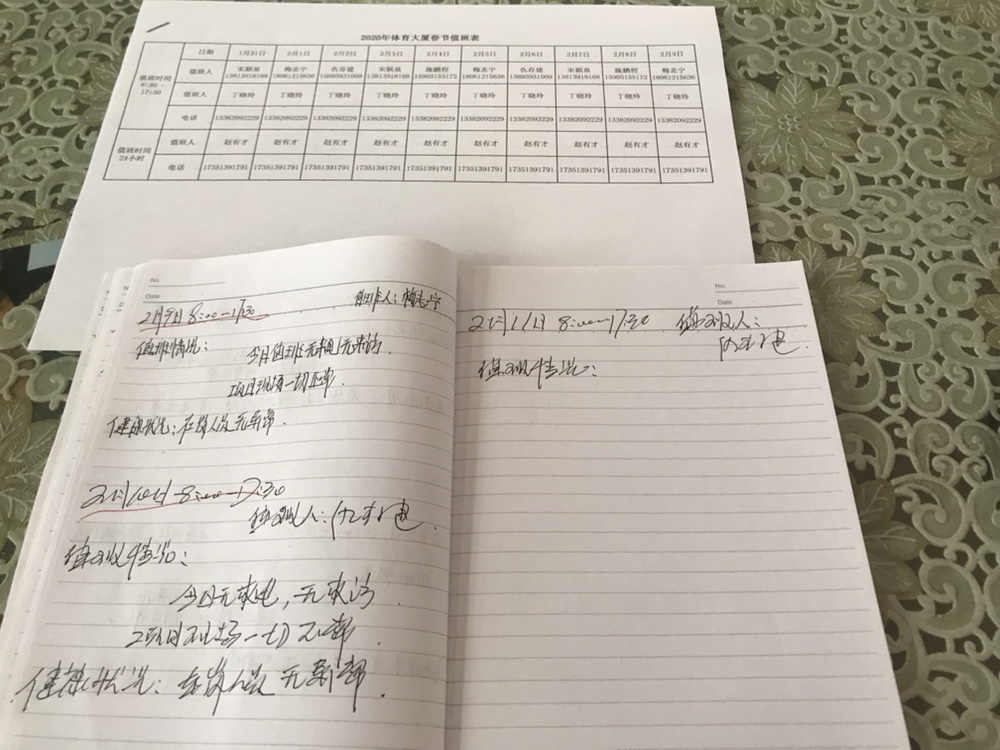 2020年体育大厦春节值班表
日期 1月31日 2月1日 2月2日 2月3日 2月4日 2月5日 2月6日 2月7日 2月8日 2月9日
值班时间 8:30-17:30
值班人 宋颖泉 梅志宁 仇存建 宋颖泉 施鹏程 梅志宁 仇存建 宋颖泉 施鹏程 梅志宁
13813918168 18061215636 15895931009 13813918168 15905155172 18061215636 15895931009 13813918168 15905155172 18061215636
值班人 丁晓玲 丁晓玲 丁晓玲 丁晓玲 丁晓玲 丁晓玲 丁晓玲 丁晓玲 丁晓玲 丁晓玲
电话 13382092229 13382092229 13382092229 13382092229 13382092229 13382092229 13382092229 13382092229 13382092229 13382092229
值班时间 24小时
值班人 赵有才 赵有才 赵有才 赵有才 赵有才 赵有才 赵有才 赵有才 赵有才 赵有才
电话 17351391791 17351391791 17351391791 17351391791 17351391791 17351391791 17351391791 17351391791 17351391791 17351391791
No.
Date
2月9日 8:00-17:30 值班人:梅志宁
值班情况:
今日值班无来电,无来访.
项目现场一切正常.
健康状况:在岗人员无异常.
2月10日 8:00-17:30
值班人:
值班情况:
今日无来电,无来访.
项目现场一切正常.
健康状况:在岗人员无异常.
No.
Date
2月11日 8:00-17:30 值班人:
值班情况: